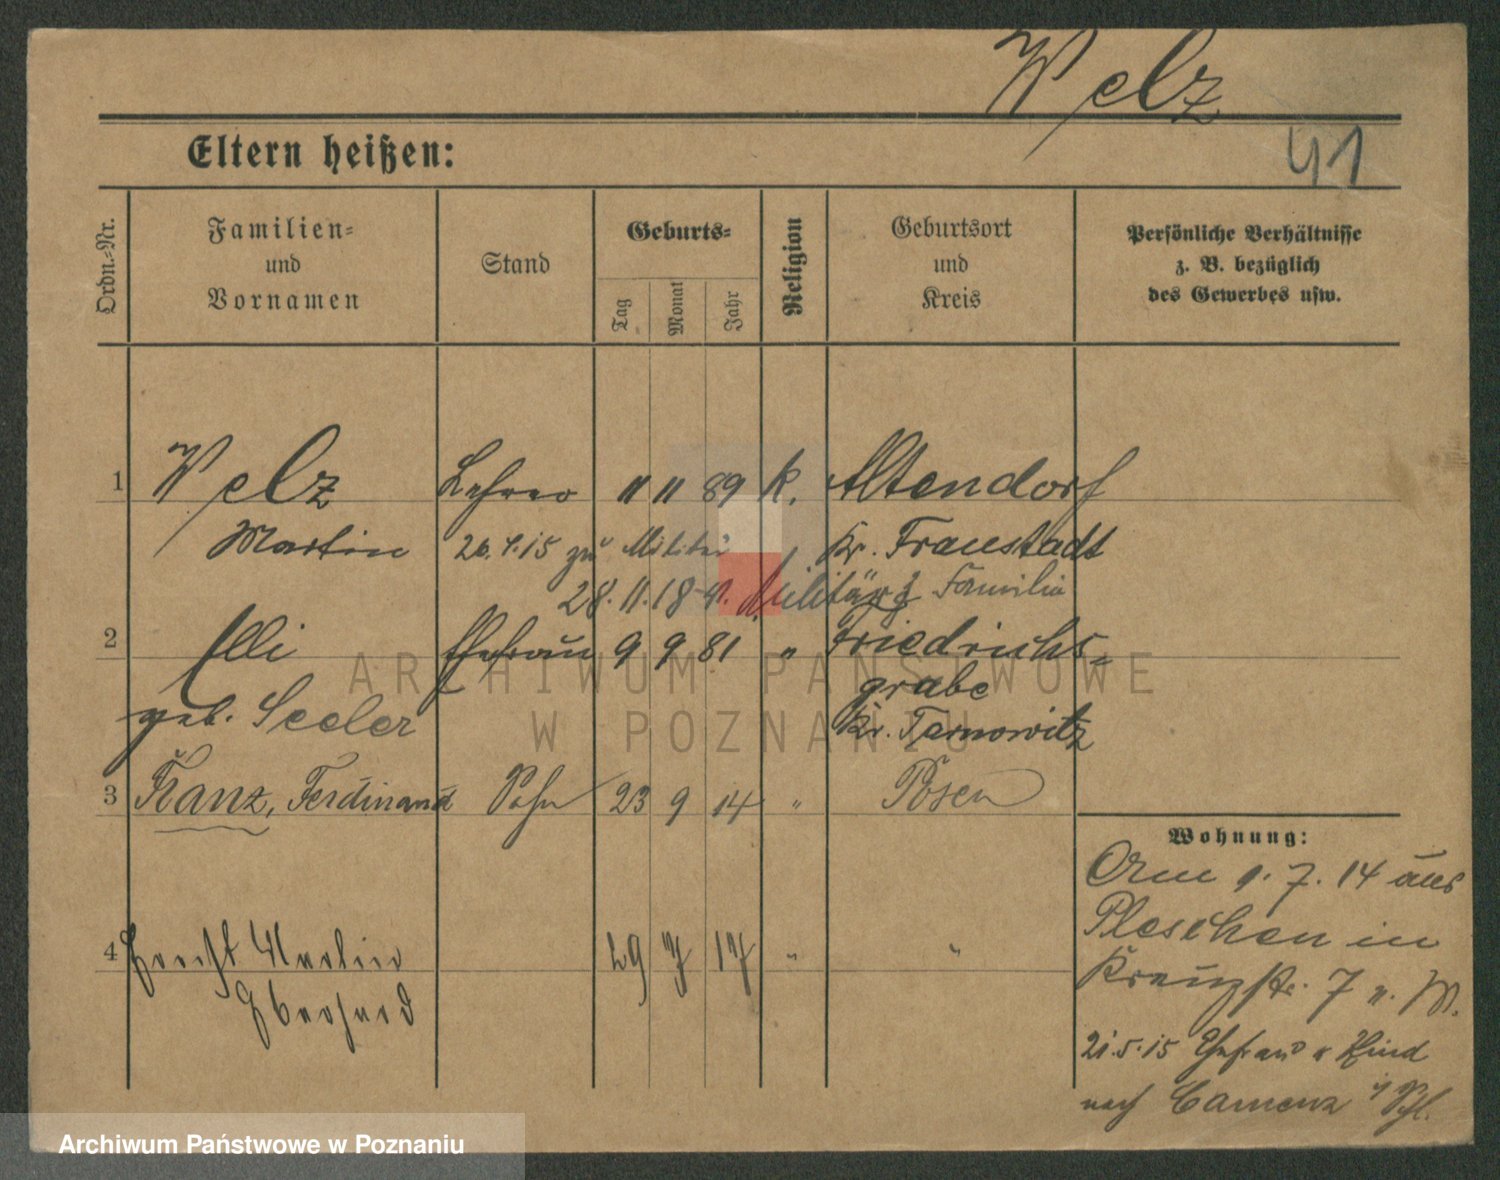 Welz
41
Eltern heißen:
Ordn.-Nr.
Familien-
und
Vornamen
Stand
Geburts-
Tag
Monat
Jahr
Religion
Geburtsort
und
Kreis
Persönliche Verhältnisse
z. B. bezüglich
des Gewerbes usw.
1 Welz Lehrer 11 11 89 K. Altendorf
Martin 26.4.15 zu Militär Kr. Fraustadt
28.11.18 v. Militär z Familie
2 Elli Ehefrau 9 9 81 " Friedrichs-
geb. Seeler grabe
Kr. Tarnowitz
3 Franz, Ferdinand Sohn 23 9 14 " Posen
Wohnung:
Am 1.7.14 aus
Pleschen in
Kreuzstr. 7 n. M.
4 Horst Martin 29 7 17 " "
Eberhard
21.5.15 Ehefrau u Kind
nach Camenz i/Schl.
ARCHIWUM PAŃSTWOWE
W POZNANIU
Archiwum Państwowe w Poznaniu